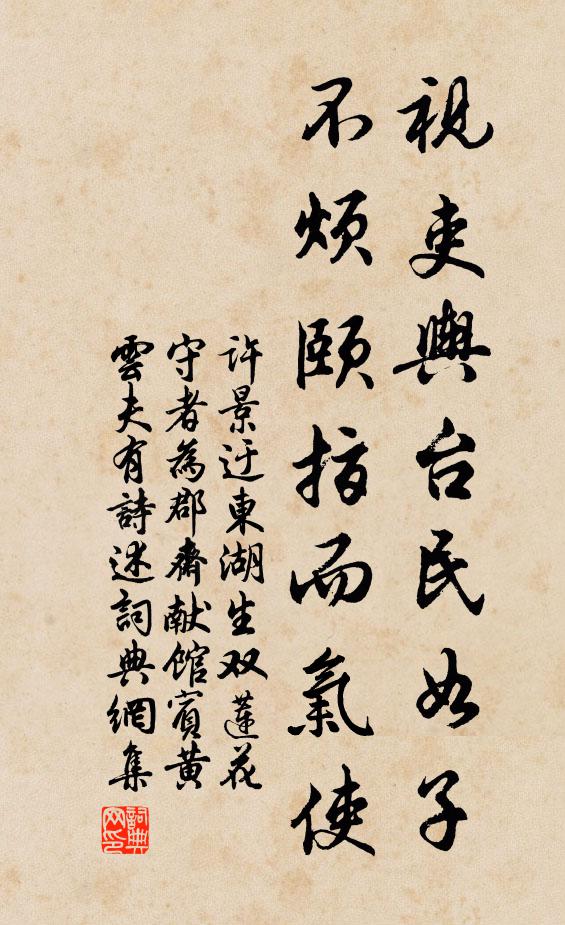 視吏輿台民如子
不煩頤指而氣使
許景迂東湖生双蓮花
守者為郡齋献館賓黃
雲夫有詩述詞典網集
詞典
网印